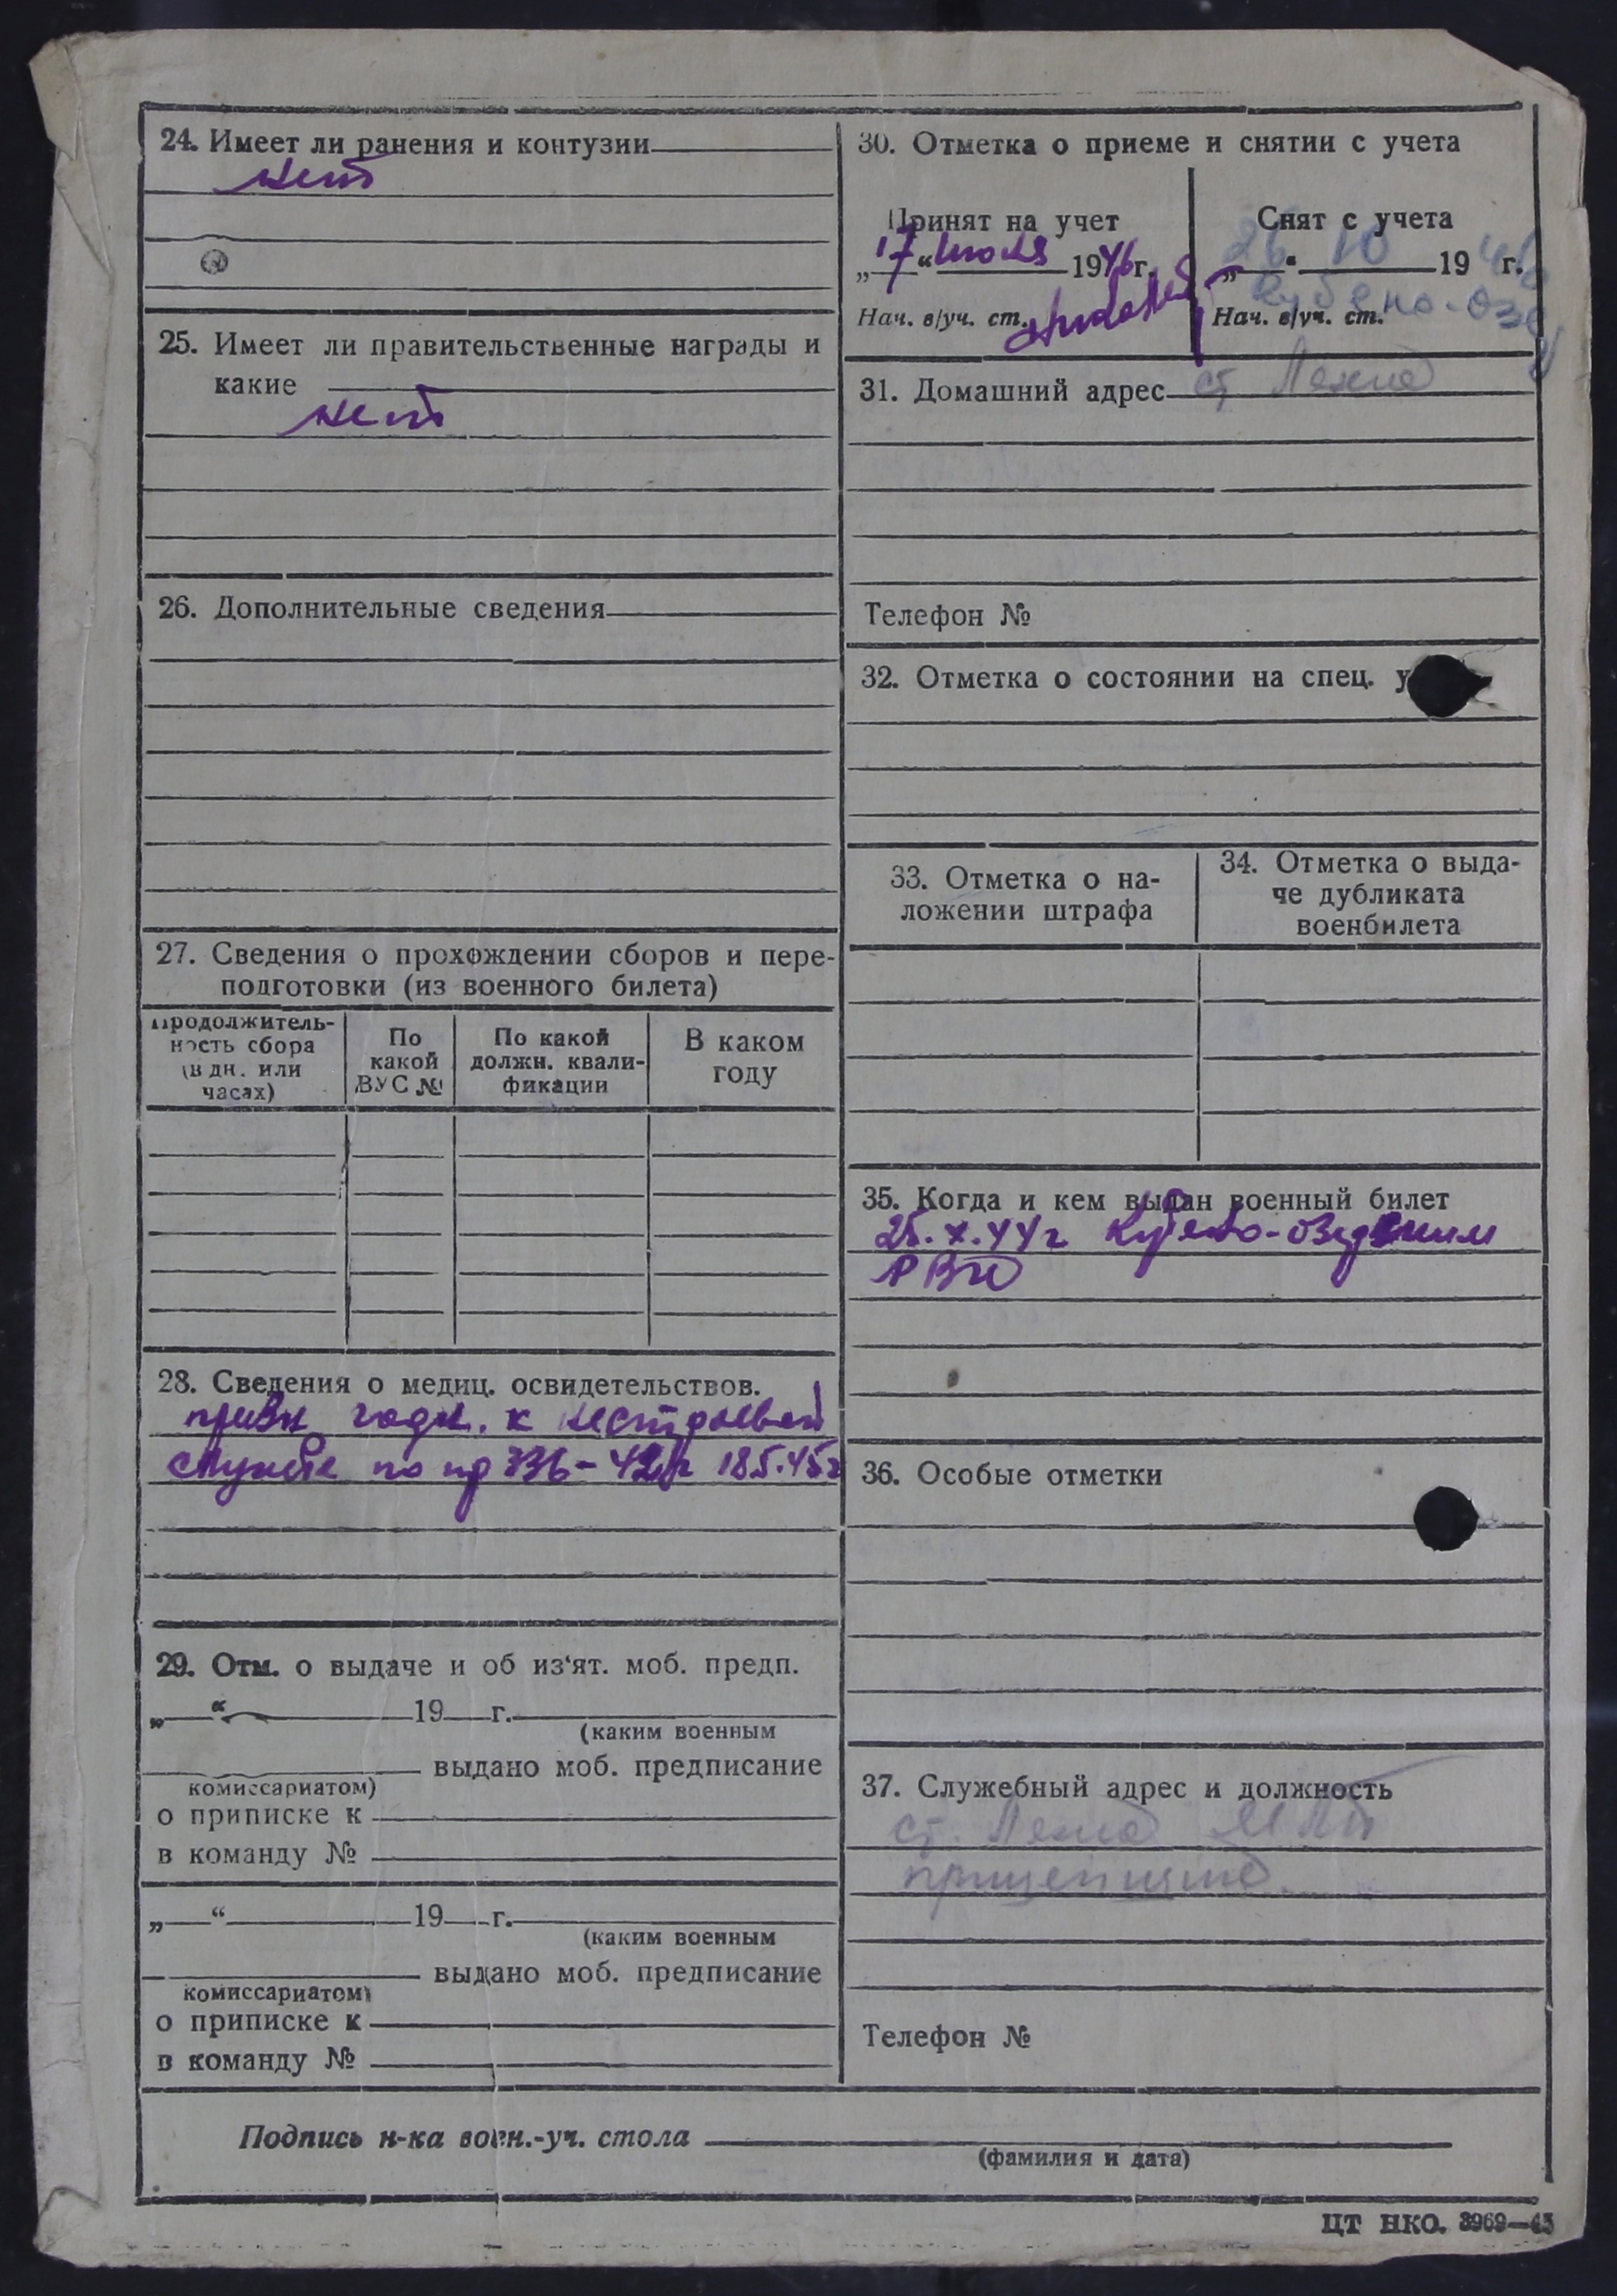 24. Имеет ли ранения и контузии
нет
25. Имеет ли правительственные награды и
какие
нет
26. Дополнительные сведения
27. Сведения о прохождении сборов и пере-
подготовки (из военного билета)
Продолжитель-
ность сбора
(в дн. или
часах)
По
какой
ВУС №
По какой
должн. квали-
фикации
В каком
году
28. Сведения о медиц. освидетельствов.
призн годн. к нестроевой
службе по пр 336-42г 18.5.45г
29. Отм. о выдаче и об из‘ят. моб. предп.
„ “ 19 г.
(каким военным
выдано моб. предписание
комиссариатом)
о приписке к
в команду №
„ “ 19 г.
(каким военным
выдано моб. предписание
комиссариатом)
о приписке к
в команду №
30. Отметка о приеме и снятии с учета
Принят на учет
„17“ июля 1946г.
Нач. в/уч. ст.
Снят с учета
„26“ 10 1946 г.
Кубено-Озе
Нач. в/уч. ст.
31. Домашний адрес ст Лежа
Телефон №
32. Отметка о состоянии на спец. у
33. Отметка о на-
ложении штрафа
34. Отметка о выда-
че дубликата
военбилета
35. Когда и кем выдан военный билет
25.X.44г Кубено-Озерским
РВК
36. Особые отметки
37. Служебный адрес и должность
ст. Лежа
прицепщик
Телефон №
Подпись н-ка воен.-уч. стола
(фамилия и дата)
ЦТ НКО. 3969—45